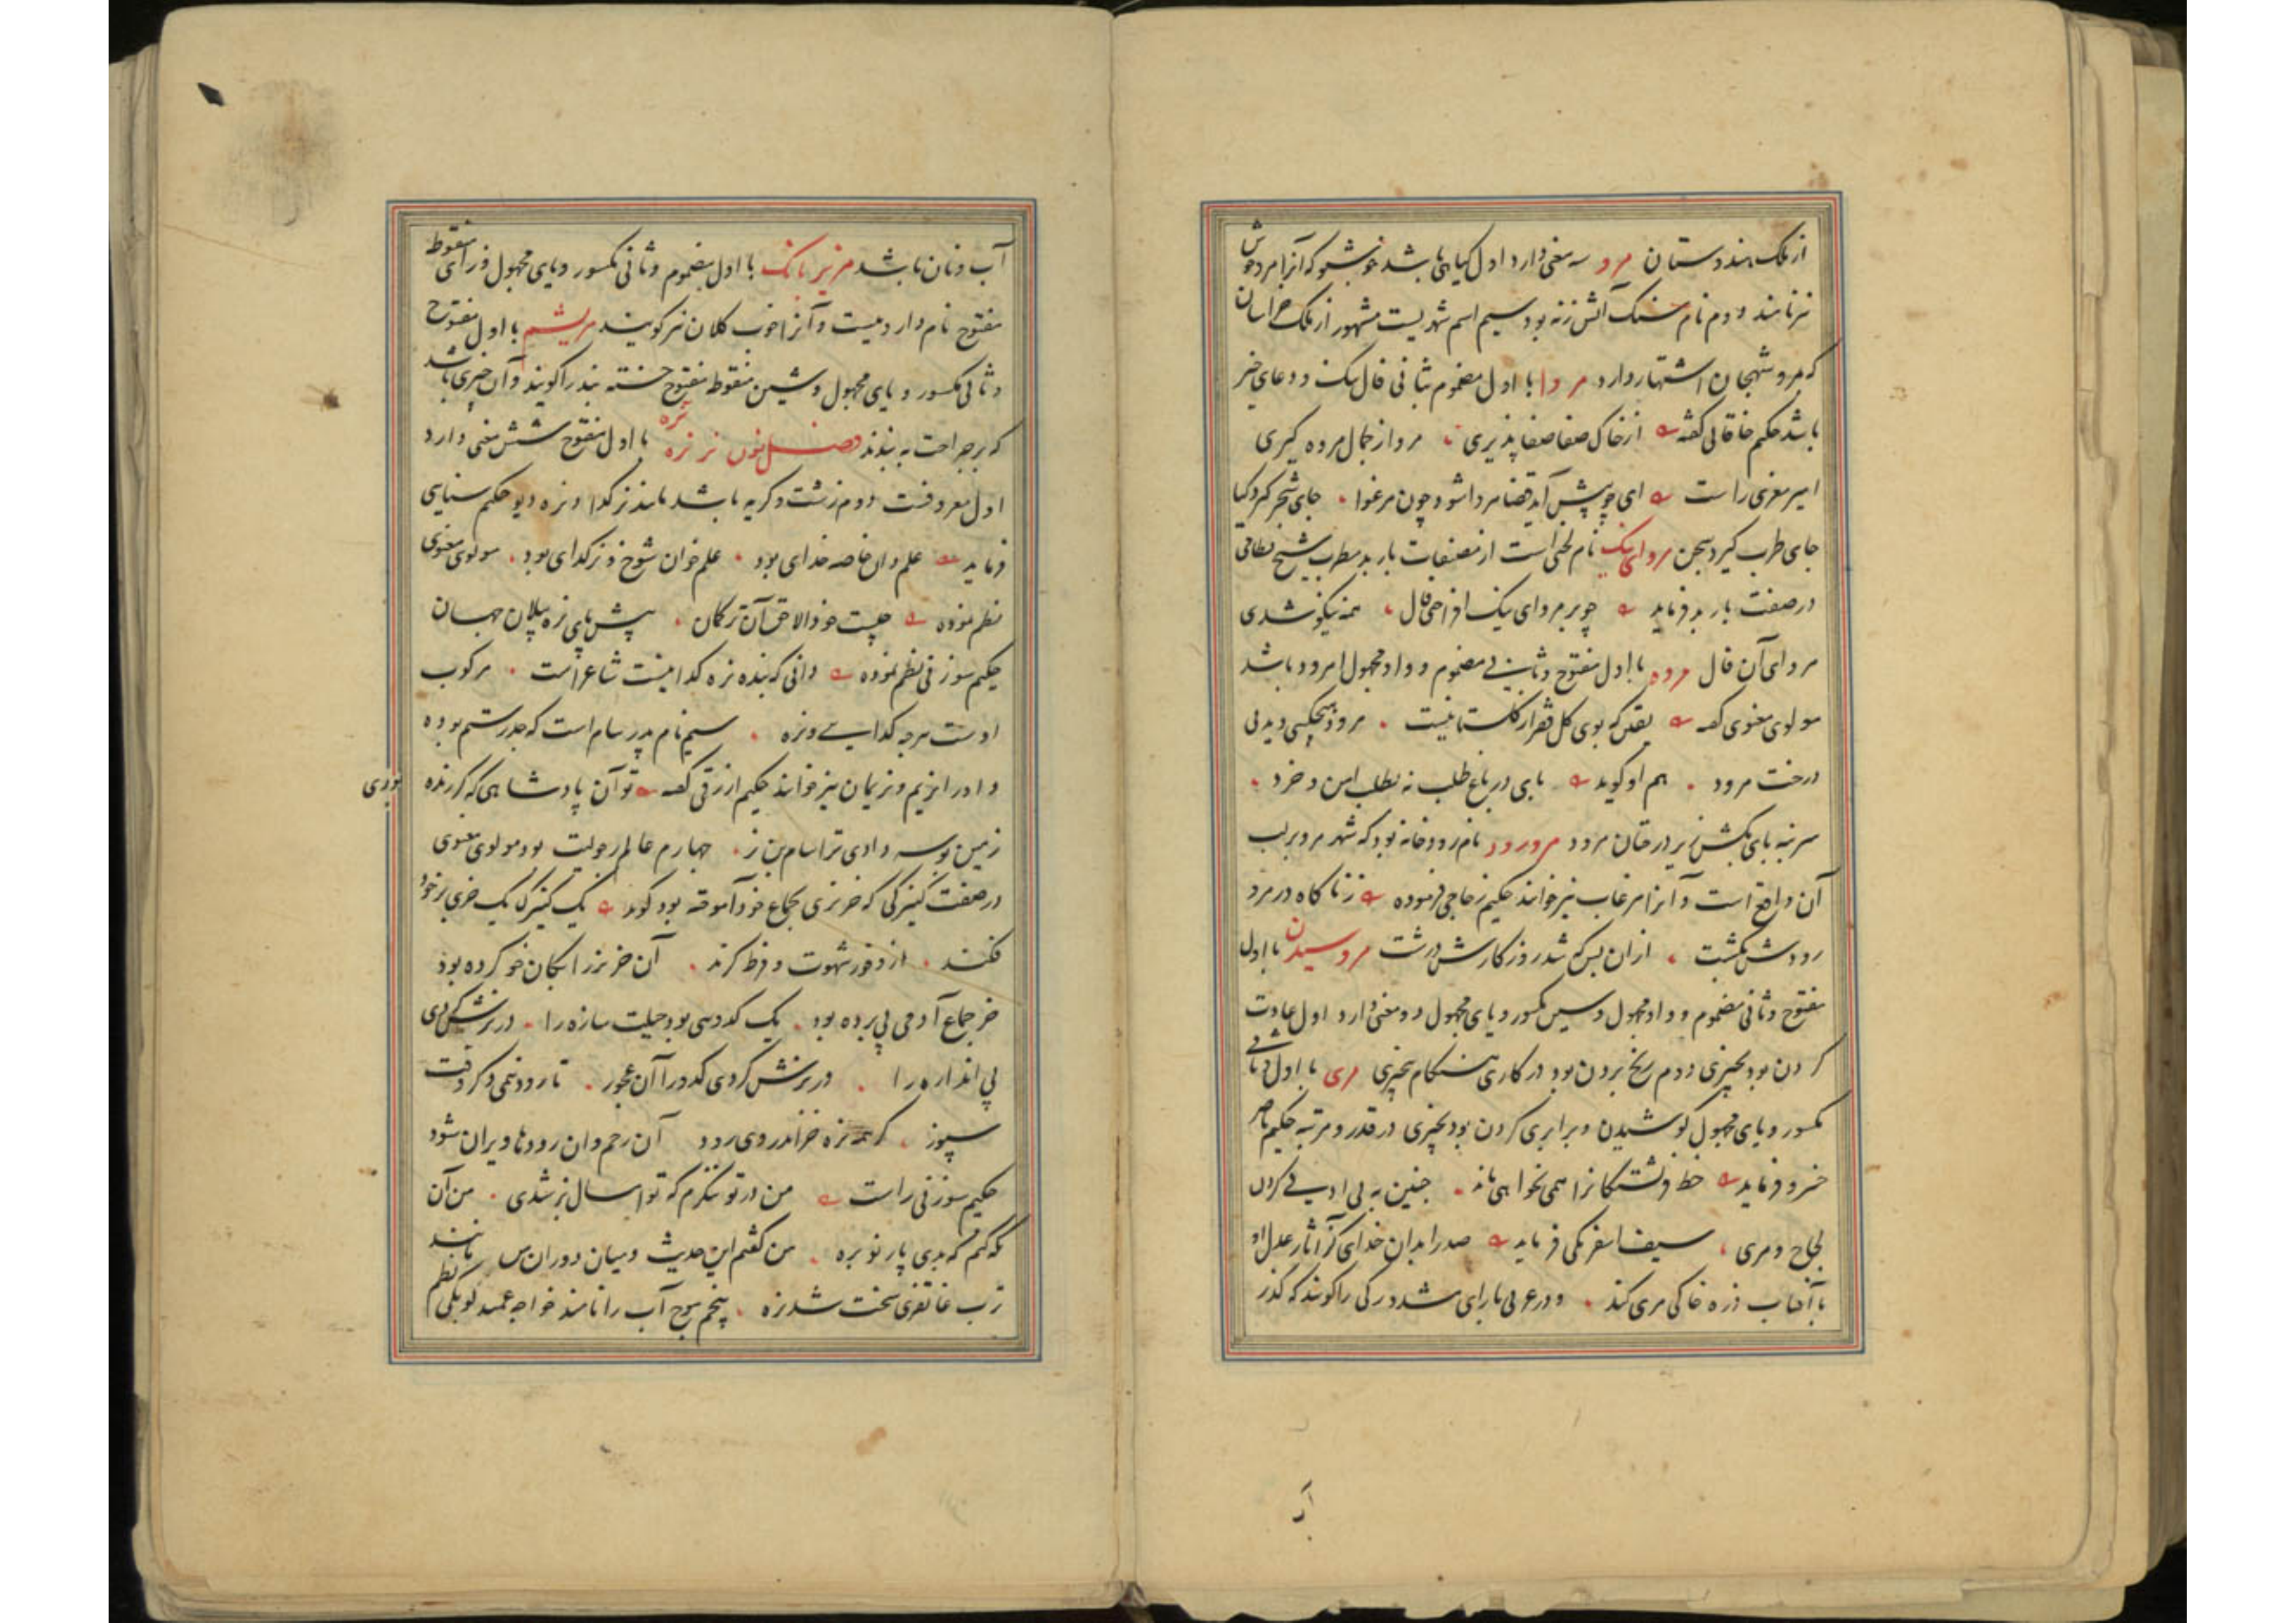 از ملک هندوستان مرو سه معنی دارد اول کیاهی باشد خوشبو که آنرا مردخوش
نیز نامند دوم نام سنک آتش زنه بود سیم اسم شهریست مشهور از ملک خراسان
که بمرو شهجان اشتهار دارد مروا با اول مضموم بثانی فال نیک و دعای خیر
باشد حکیم خاقانی گفته از خاک صفا صفا پذیری مروا ز جمال مرده گیری
امیر معزی راست ای چو پیش آید قضا مروا شود چون مرغوا جای شجر گیرد گیا
جای طرب گیرد شجن مروای نیک نام لحنی است از مصنفات باربد مطرب شیخ نظامی
در صفت باربد فرماید چو بر مروای نیک انداختی فال همه نیکو شدی
مروای آن فال مرود با اول مفتوح و ثانی مضموم و واو مجهول امرود باشد
مولوی معنوی گفته بوی کل فقر از گلستان نیست مرود هیچکس دیدی
درخت مرود هم او گوید بابی در باغ طلب نه بطلب این و خرد
سر بنه بای بکش زیر درختان مرود مرورود نام رودخانه بود که شهر مرو بر لب
آن واقع است و آنرا مرغاب نیز خوانند حکیم زجاجی فرموده ز ناکاه در مرو
رودش بکشت از آن پس که شد روزگارش درشت مروسیدن با اول
مفتوح و ثانی مضموم و واو مجهول و سین مکسور و یای مجهول دو معنی دارد اول عادت
کردن بود بچیزی دوم رنج بردن بود در کاری هنگام بچیزی مری با اول و ثانی
مکسور و یای مجهول کوشیدن و برابری کردن بود بچیزی در قدر و مرتبه حکیم ناصر
خسرو فرماید خط فرشتکانرا همی نخواهی خواند چنین به بی ادبی کردن
لجاج و مری سیف اسفرنکی فرماید صدرا بدان خدای کز آثار عدل او
با آفتاب ذره خاکی مری کند و در عربی با رای مشدد رکی را کویند که کذر
آب
آب و نان باشد مریزبانک با اول مضموم و ثانی مکسور و یای مجهول و زای منقوط
مفتوح نام داروییست و آنرا خوب کلان نیز کویند مریشم با اول مفتوح
و ثانی مکسور و یای مجهول و شین منقوط مفتوح خسته بند را کویند و آن چیزی باشد
که بر جراحت به بندند فصل نون نر نره با اول مفتوح شش معنی دارد
نره
اول معروفست دوم زشت و کریه باشد مانند نر کدا و نره دیو حکیم سنایی
فرماید علم دان خاصه خدای بود علم خوان شوخ و نر کدای بود مولوی معنوی
نظم نموده چیست خود آلاجق آن ترکمان پیش پای نره پیلان جهان
حکیم سوزنی نظم نموده دانی که بنده نره کدا نیست شاعر است مرکوب
اوست هرچه کدایی و نره سیم نام پدر سام است که جد رستم بوده
و او را نریم و نریمان نیز خوانند حکیم ازرقی گفته تو آن پادشاهی که گر زنده بودی
زمین بوسه دادی ترا سام بن نر چهارم عالم رجولیت بود مولوی معنوی
در صفت کنیزکی که خر نری بجماع خود آموخته بود گوید یک کنیزک یک خری بر خود
فکند از وفور شهوت و فرط گزند آن خر نر را بکان خو کرده بود
خر جماع آدمی پی برده بود یک کدویی بود حیلت سازه را در نرش کردی
پی اندازه را در نرش کردی کدو را آن عجوز تا رود نیمی ذکر وقت
سپوز گر همه نره خر اندر وی رود آن رحم و آن رودها ویران شود
حکیم سوزنی راست من در تو ننگرم که تو امسال نر شدی من آن
که بدی پار نو بره من گفتم این حدیث و میان دو ران من مانند
ترب غاتفری سخت شد نره پنجم موج آب را نامند خواجه عمید لویکی نظم